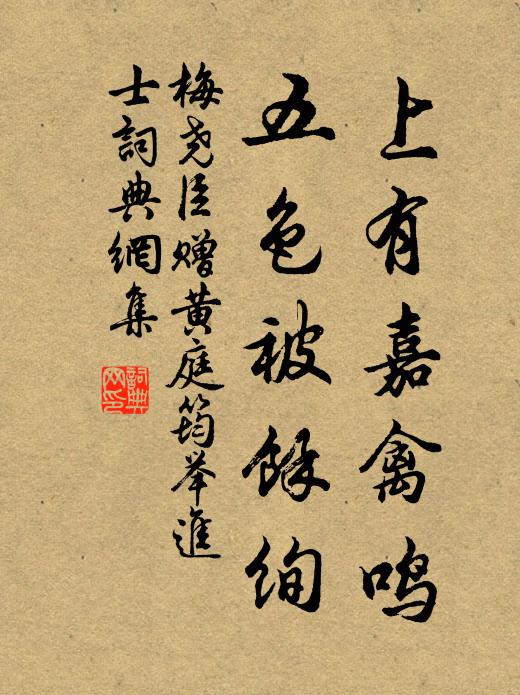 上有嘉禽鸣
五色被餘绚
梅尧臣赠黄庭筠举進
士詞典網集
詞典
网印